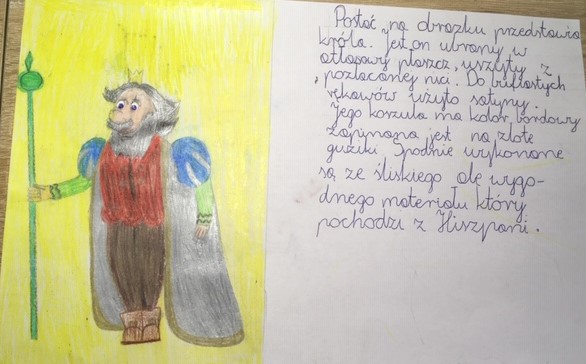 Postać na obrazku przedstawia
króla. Jest on ubrany w
atłasowy płaszcz, uszyty z
pozłacanej nici. Do bufiastych
rękawów użyto satyny.
Jego koszula ma kolor bordowy
zapinana jest na złote
guziki. Spodnie wykonane
są ze śliskiego ale wygo-
dnego materiału który
pochodzi z Hiszpani.